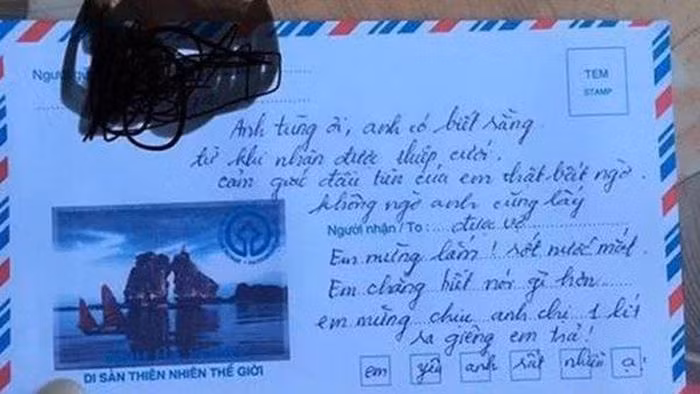 TEM
STAMP
Anh tùng ơi, anh có biết rằng
từ khi nhận được thiệp cưới.
cảm giác đầu tiên của em thật bất ngờ.
không ngờ anh cũng lấy
Người nhận / To : được vợ
Em mừng lắm ! rớt nước mắt.
Em chẳng biết nói gì hơn
em mừng chịu anh chị 1 lít
ra giêng em trả!
em yêu anh rất nhiều ạ!
DI SẢN THIÊN NHIÊN THẾ GIỚI